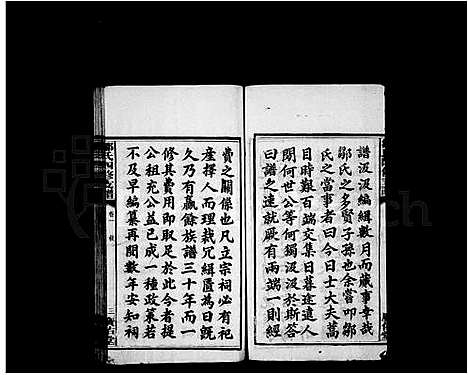 譜汲汲編緝數月而蕆事幸哉
鄒氏之多賢子孫也余嘗叩鄒
氏之當事者曰今日士大夫萬
目時艱百端交集日暮途遠人
間何世公等何鐲汲汲於斯答
曰譜之速就厥有兩端一則經
費之關係也凡立宗祠必有祀
產擇人而理裁冗緝匱為日旣
久乃有贏餘族譜三十年而一
修其費用即取足於此今者提
公租充公益已成一種政策若
不及早編纂再閱數年安知祠
鄒氏四修支譜
卷一
三